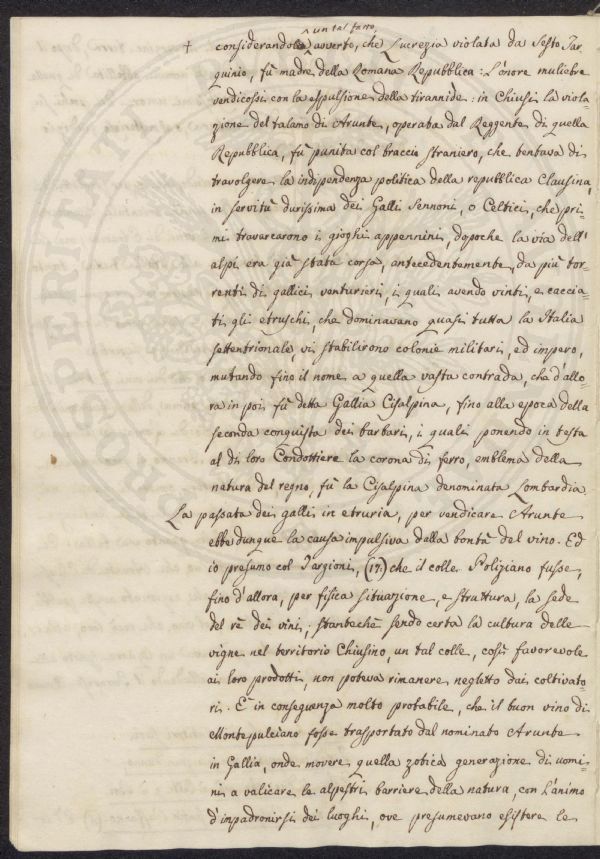 un tal fatto
+ considerando avverto, che Lucrezia violata da Sesto Tar
quinio, fù madre della Romana Repubblica: L'onore muliebre
vendicossi con la espulsione della tirannide: in Chiusi la viola=
zione del talamo di Arunte, operata dal Reggente di quella
Repubblica, fù punita col braccio straniero, che tentava di
travolgere la indipendenza politica della repubblica Clausina,
in servitù durissima dei Galli Sennoni, o Celtici, che pri=
mi travarcarono i gioghi appennini, dopoche la via dell'
alpi era già stata corsa, antecedentemente, da più tor=
renti di gallici venturieri, i quali avendo vinti, e caccia=
ti gli etruschi, che dominavano quasi tutta la Italia
settentrionale, vi stabilirono colonie militari, ed impero,
mutando fino il nome a quella vasta contrada, che d'allo=
ra in poi fù detta Gallia Cisalpina, fino alla epoca della
seconda conquista dei barbari, i quali ponendo in testa
al di loro Condottiere la corona di ferro, emblema della
natura del regno, fù la Cisalpina denominata Lombardia
La passata dei galli in etruria, per vendicare Arunte
ebbe dunque la causa impulsiva dalla bontà del vino. Ed
io presumo col Targioni, (17) che il colle Poliziano fusse,
fino d'allora, per fisica situazione, e struttura, la sede
del rè dei vini, stantechè sendo certa la cultura delle
vigne nel territorio Chiusino, un tal colle, così favorevole
ai loro prodotti, non poteva rimanere negletto dai coltivato=
ri. È in conseguenza molto probabile, che il buon vino di
Montepulciano fosse trasportato dal nominato Arunte
in Gallia, onde movere quella zotica generazione di uomi=
ni a valicare le alpestri barriere della natura, con l'animo
d'impadronirsi dei luoghi, ove presumevano esistere le